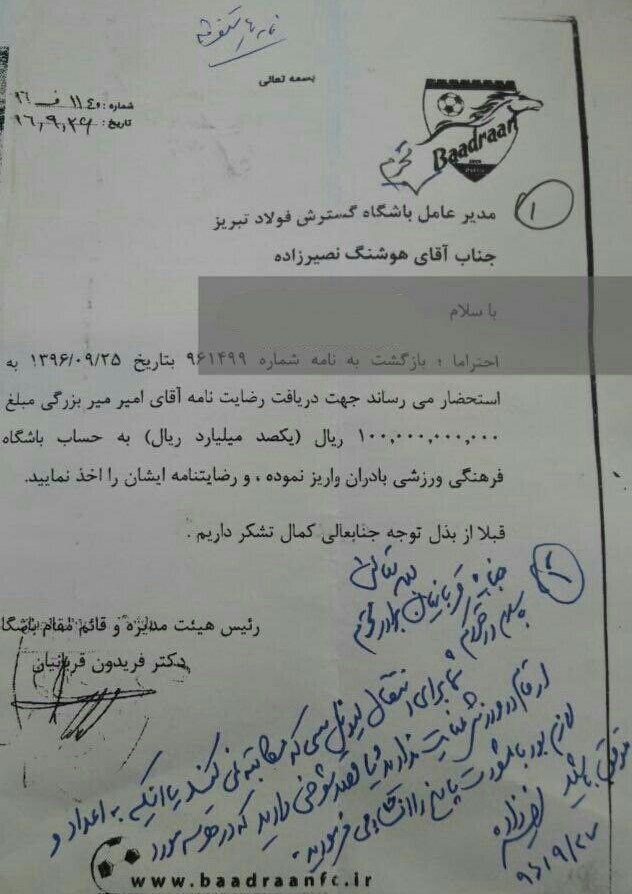 بسمه تعالی
شماره: ۱۱۴۰ ف ۹۶
تاریخ: ۹۶,۹,۲۶
Baadraan
۱
مدیر عامل باشگاه گسترش فولاد تبریز
جناب آقای هوشنگ نصیرزاده
با سلام
احتراما ؛ بازگشت به نامه شماره ۹۶۱۴۹۹ بتاریخ ۱۳۹۶/۰۹/۲۵ به
استحضار می رساند جهت دریافت رضایت نامه آقای امیر میر بزرگی مبلغ
۱۰۰,۰۰۰,۰۰۰,۰۰۰ ریال (یکصد میلیارد ریال) به حساب باشگاه
فرهنگی ورزشی بادران واریز نموده ، و رضایتنامه ایشان را اخذ نمایید.
قبلا از بذل توجه جنابعالی کمال تشکر داریم .
رئیس هیئت مدیره و قائم مقام باشگاه
دکتر فریدون قربانیان
۲
جناب قربانیان برادر محترم
با سلام و احترام شما برای انتقال لیونل مسی که مکاتبه نمی کنید یا اینکه به اعداد و
ارقام در ورزش عنایت ندارید و یا قصد شوخی دارید که در هر سه مورد
لازم بود با مشورت پاسخ را می فرمودید.
موفق باشید
نصیرزاده
۹۶/۹/۲۷
www.baadraanfc.ir